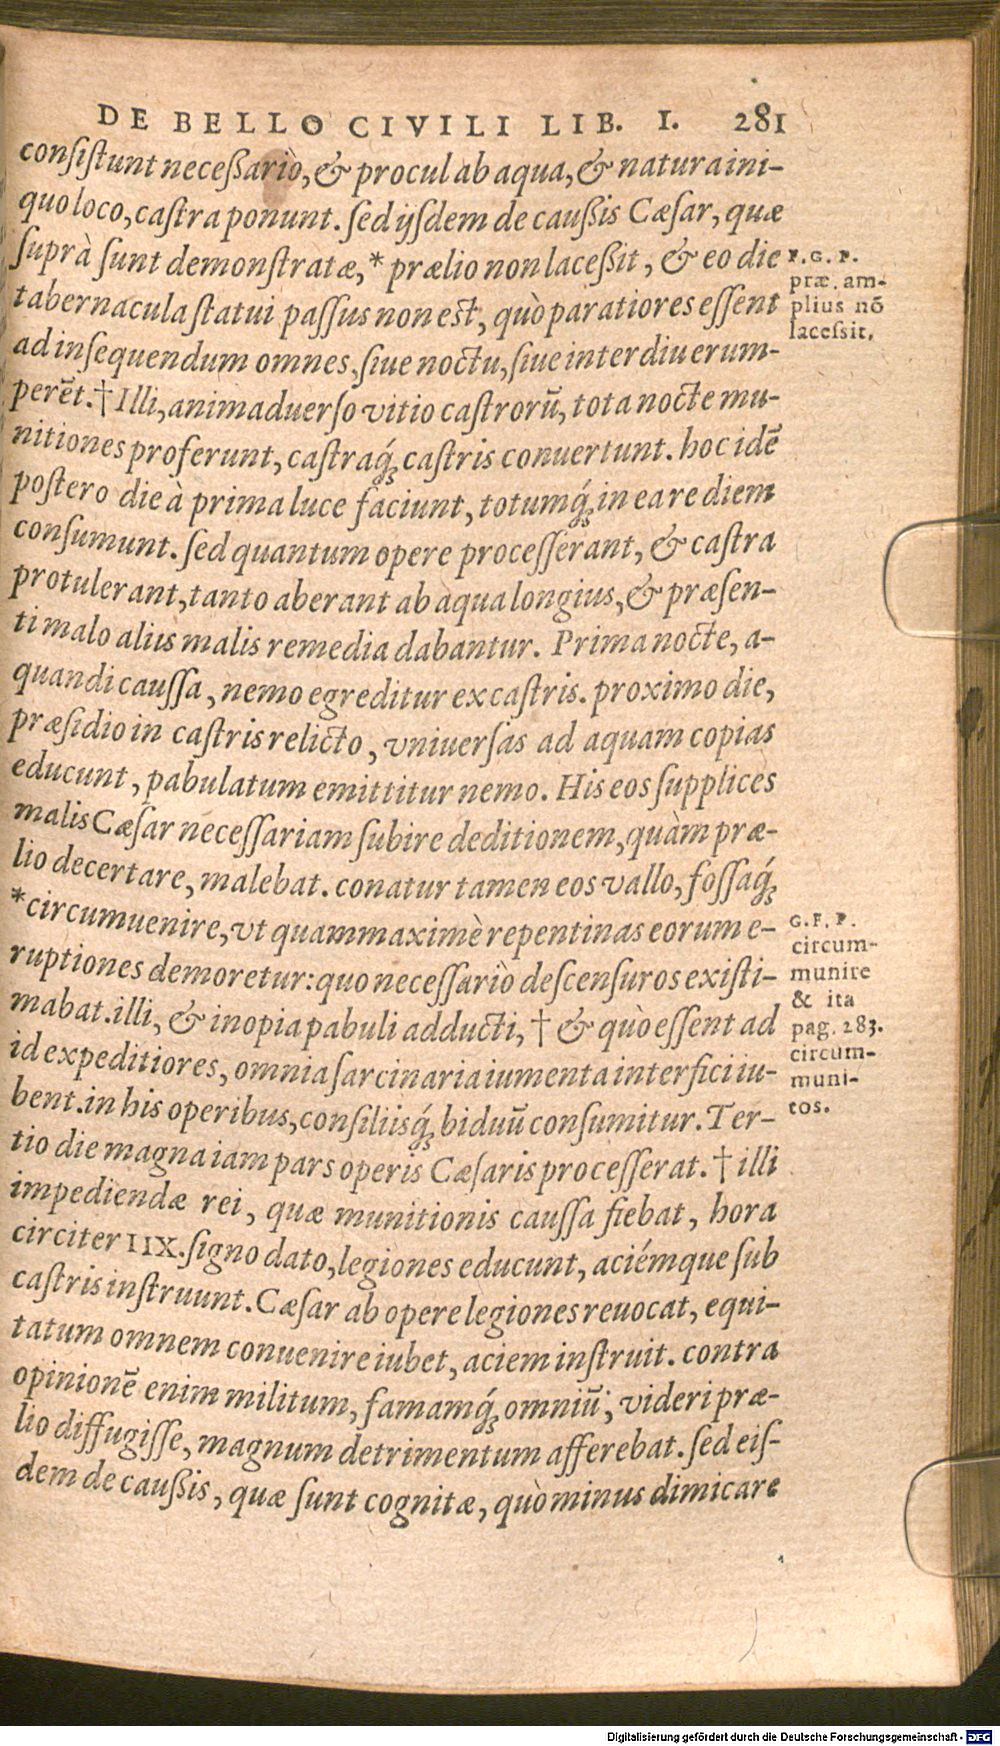 DE BELLO CIVILI LIB. I. 281
consistunt neceßariò, & procul ab aqua, & natura ini-
quo loco, castra ponunt. sed ijsdem de caußis Cæsar, quæ
suprà sunt demonstratæ,* prælio non laceßit, & eo die
tabernacula statui passus non est, quò paratiores essent
ad insequendum omnes, siue noctu, siue interdiu erum-
perēt.† Illi, animaduerso vitio castrorū, tota nocte mu-
nitiones proferunt, castraq́; castris conuertunt. hoc idē
postero die à prima luce faciunt, totumq́; in ea re diem
consumunt. sed quantum opere processerant, & castra
protulerant, tanto aberant ab aqua longius, & præsen-
ti malo aliis malis remedia dabantur. Prima nocte, a-
quandi caussa, nemo egreditur ex castris. proximo die,
præsidio in castris relicto, vniuersas ad aquam copias
educunt, pabulatum emittitur nemo. His eos supplices
malis Cæsar necessariam subire deditionem, quàm præ-
lio decertare, malebat. conatur tamen eos vallo, fossaq́;
*circumuenire, vt quam maximè repentinas eorum e-
ruptiones demoretur: quo necessariò descensuros existi-
mabat. illi, & inopia pabuli adducti, † & quò essent ad
id expeditiores, omnia sarcinaria iumenta interfici iu-
bent. in his operibus, consiliisq́; biduū consumitur. Ter-
tio die magna iam pars operis Cæsaris processerat. † illi
impediendæ rei, quæ munitionis caussa fiebat, hora
circiter IIX. signo dato, legiones educunt, aciémque sub
castris instruunt. Cæsar ab opere legiones reuocat, equi-
tatum omnem conuenire iubet, aciem instruit. contra
opinionē enim militum, famamq́; omniū, videri præ-
lio diffugisse, magnum detrimentum afferebat. sed eis-
dem de caußis, quæ sunt cognitæ, quò minus dimicare
F. G. P.
præ. am-
plius nō
lacessit.
G. F. P.
circum-
munire
& ita
pag. 283.
circum-
muni-
tos.
Digitalisierung gefördert durch die Deutsche Forschungsgemeinschaft - DFG